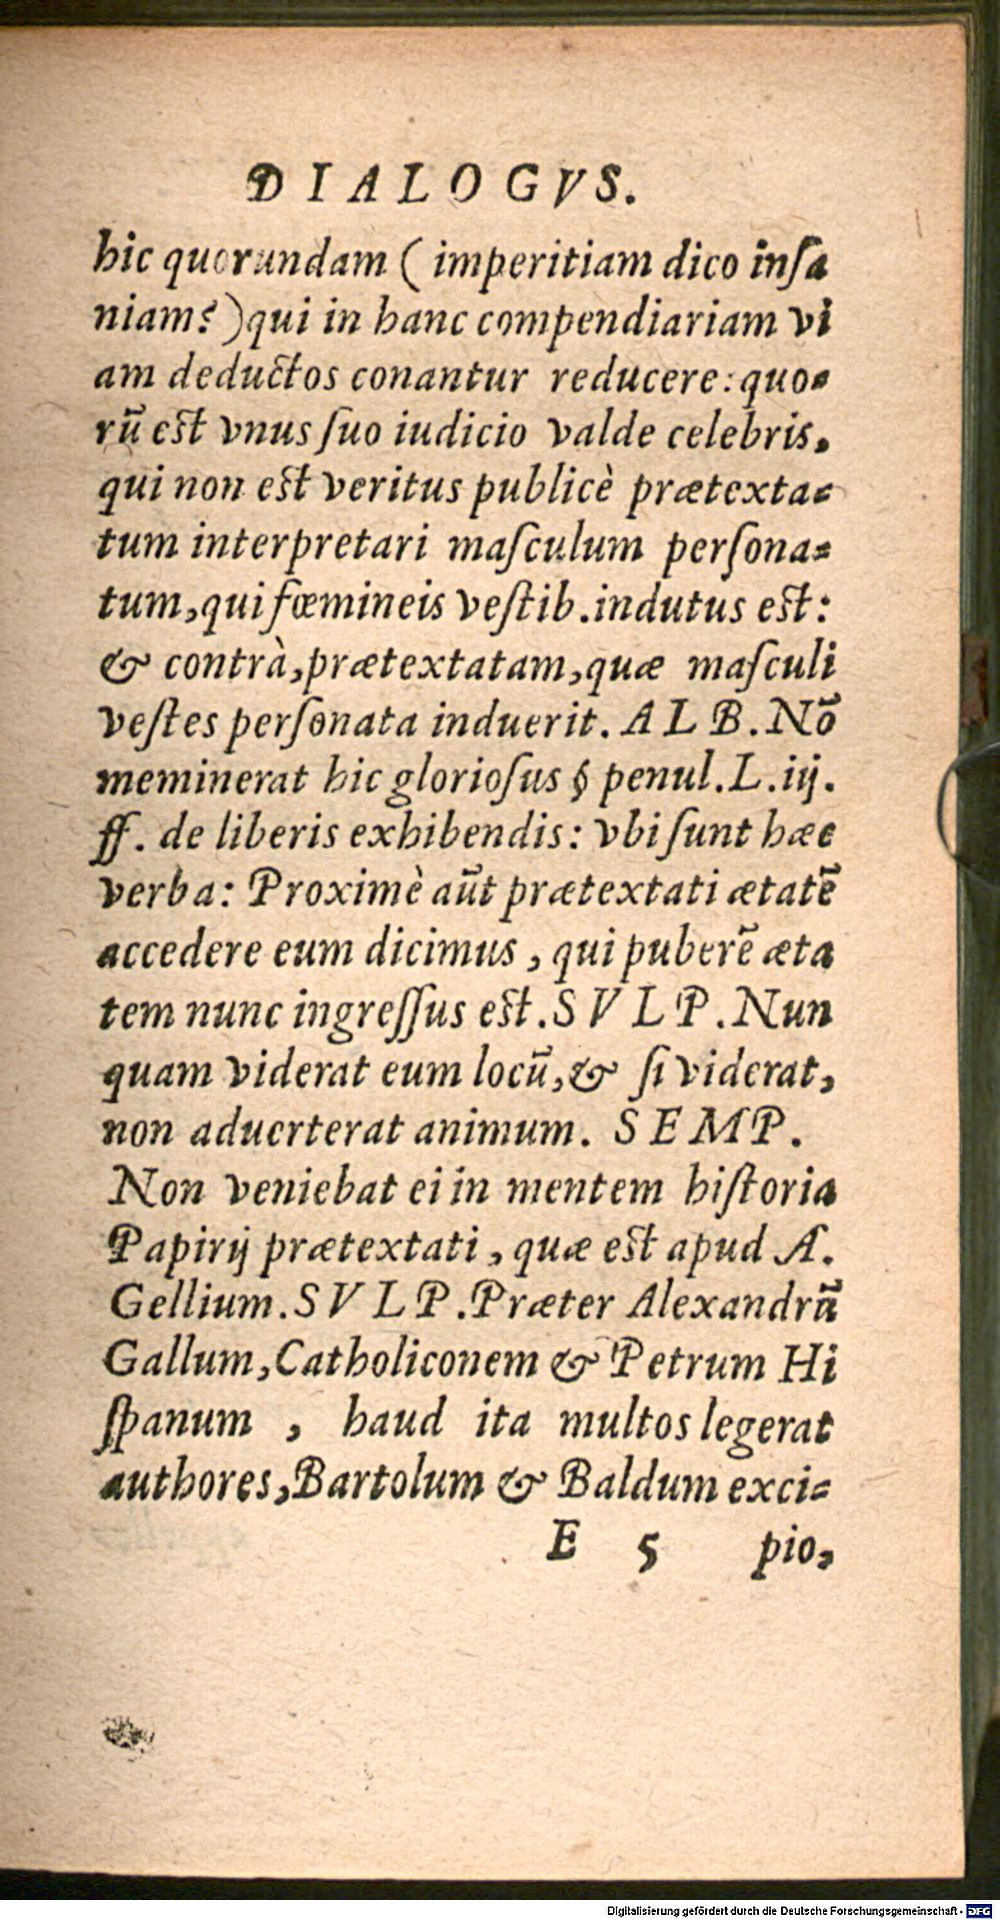 DIALOGVS.
hic quorundam ( imperitiam dico inſa
niam? )qui in hanc compendiariam vi
am deductos conantur reducere: quo-
rū est vnus ſuo iudicio valde celebris,
qui non est veritus publicè prætexta-
tum interpretari maſculum perſona-
tum, qui fœmineis veſtib. indutus est:
& contrà, prætextatam, quæ maſculi
veſtes perſonata induerit. ALB. Nō
meminerat hic glorioſus § penul. L. iij.
ff. de liberis exhibendis: vbi ſunt hæc
verba: Proximè aūt prætextati ætatē
accedere eum dicimus, qui puberē æta
tem nunc ingreſſus est. SVLP. Nun
quam viderat eum locū, & ſi viderat,
non aduerterat animum. SEMP.
Non veniebat ei in mentem hiſtoria
Papirij prætextati, quæ est apud A.
Gellium. SVLP. Præter Alexandrū
Gallum, Catholiconem & Petrum Hi
ſpanum, haud ita multos legerat
authores, Bartolum & Baldum exci-
E 5 pio,
Digitalisierung gefördert durch die Deutsche Forschungsgemeinschaft - DFG